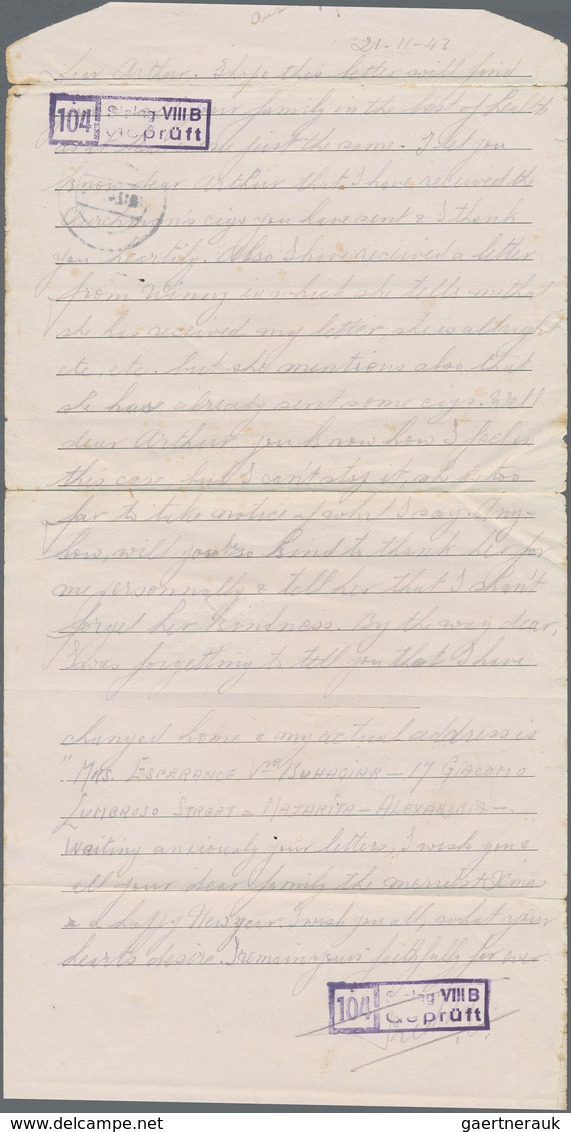 21-11-43
Dear Arthur. I hope this letter will find
104 Stalag VIII B Geprüft
your family in the best of health
just the same. I let you
know dear Arthur that I have received the
Churchman's cigs you have sent & I thank
you heartily. Also I have received a letter
from Winny in which she tells me that
she has received my letter, she is allright
etc, etc. but she mentions also that
she have already sent some cigs. Well
dear Arthur you know how I feel in
this case, but I can't stop it, she is too
far to take notice of what I say. Any-
how, will you be so kind to thank her for
me personnally & tell her that I shan't
forget her kindness. By the way dear,
I was forgetting to tell you that I have
changed home & my actual address is
"Mrs. ESPERANCE Vve BUHAGIAR - 17 GIACOMO
LUMBROSO STREET = MAZARITA - ALEXANDRIA -.
Waiting anciously your letters, I wish you &
all your dear family the merriest Xmas
& a happy New year. I wish you all, what your
hearts desire. I remain yours faithfully for ever
104 Stalag VIII B Geprüft
gaertnerauk
gaertnerauk.com